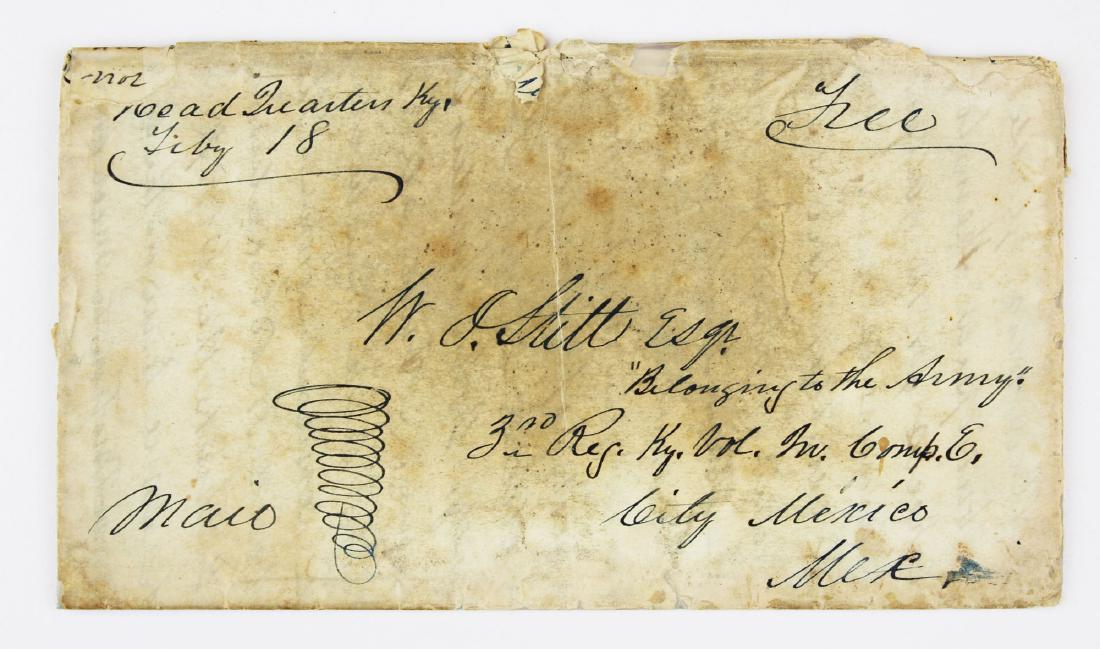 Head Quarters Ky.
Feby 18
Free
W. J. Stitt Esqr.
"Belonging to the Army".
3rd Reg. Ky. Vol. In. Comp. E.
City México
Mex